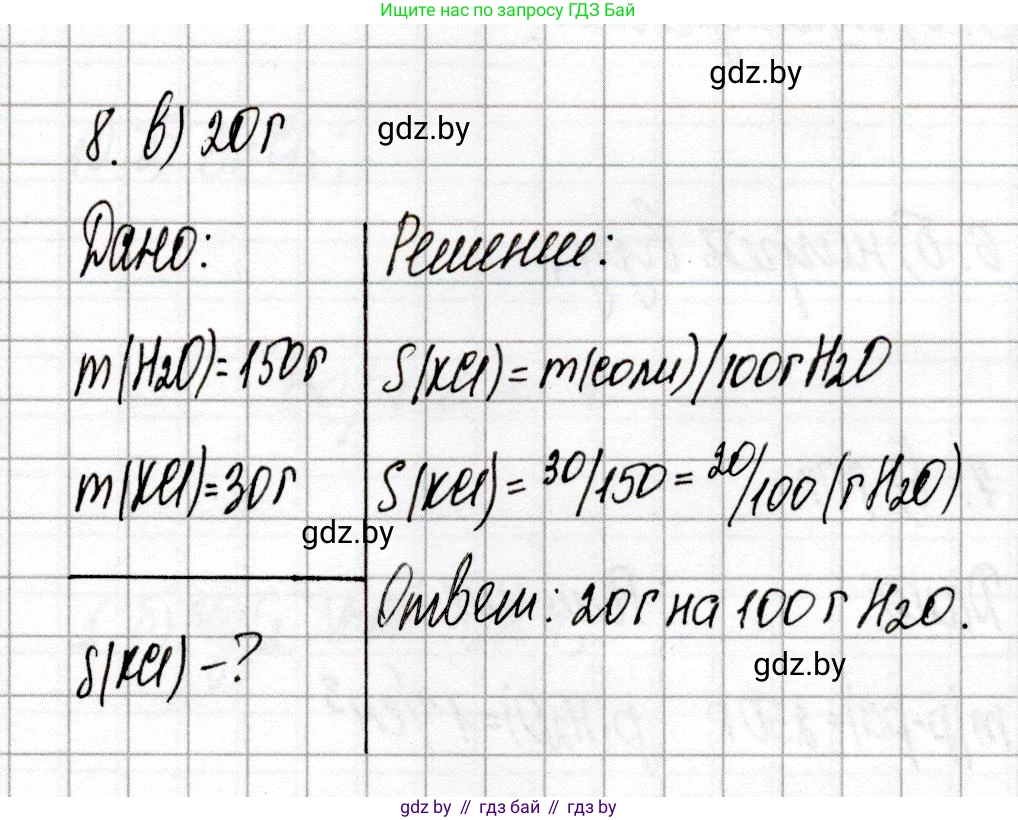 Ищите нас по запросу ГДЗ Бай
gdz.by
8. в) 20 г
gdz.by
Дано:
Решение:
m(H2O)=150г
S(KCl) = m(соли)/100г H2O
m(KCl)=30г
S(KCl) = 30/150 = 20/100 (г H2O)
gdz.by
Ответ: 20 г на 100 г H2O.
S(KCl) – ?
gdz.by
gdz.by // гдз бай // гдз by